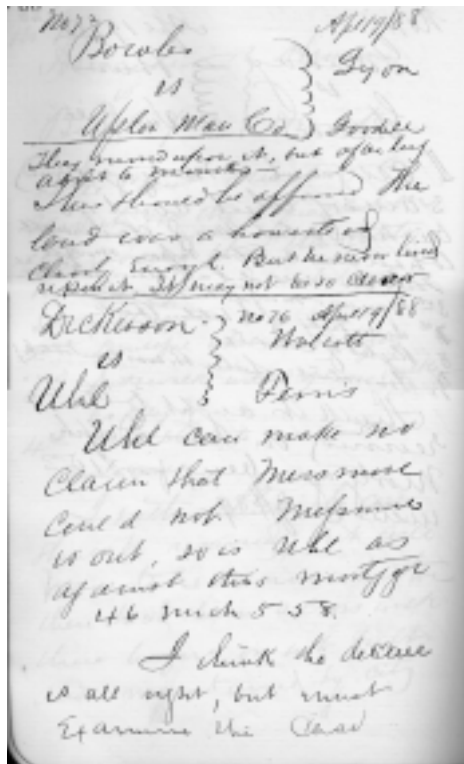 No 77 Apl 19/88
Bowles
vs Lyon
Mau Co Goodell
They moved upon it, but after
about 6 months
This should be affirmed The
land was a homestead of
Charl. But he never lived
upon it. It may not be so
Dickerson No 76 Apl 19/88
vs Wolcott
Uhl Ferris
Uhl can make no
claim that Messmore
could not. Messmore
is out, so is Uhl as
against this mortgge
46 Mich 558.
I think the decree
is all right, but must
Examine the Case